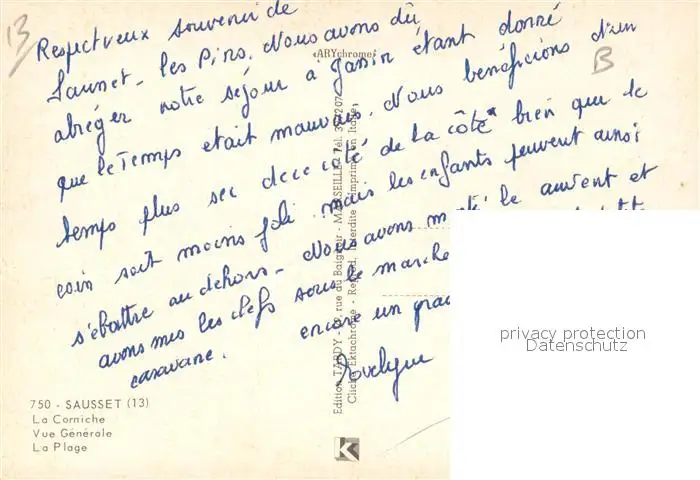 13
Respectueux souvenir de
Sausset-les Pins. Nous avons dû
abréger notre séjour à étant donné
que le Temps était mauvais. Nous bénéficions d'un
temps plus sec de ce côté de la côte bien que le
coin soit moins joli mais les enfants peuvent ainsi
s'ébattre au dehors - Nous avons le auvent et
avons mis les clefs sous le marche
caravane. encore un
B
«ARYchrome»
Edition TARDY - rue du Baigneur - MARSEILLE - Tél.
Cliché Ektachrome - Reprod. Interdite - Imprimé en Italie
750 - SAUSSET (13)
La Corniche
Vue Générale
La Plage
K
privacy protection
Datenschutz